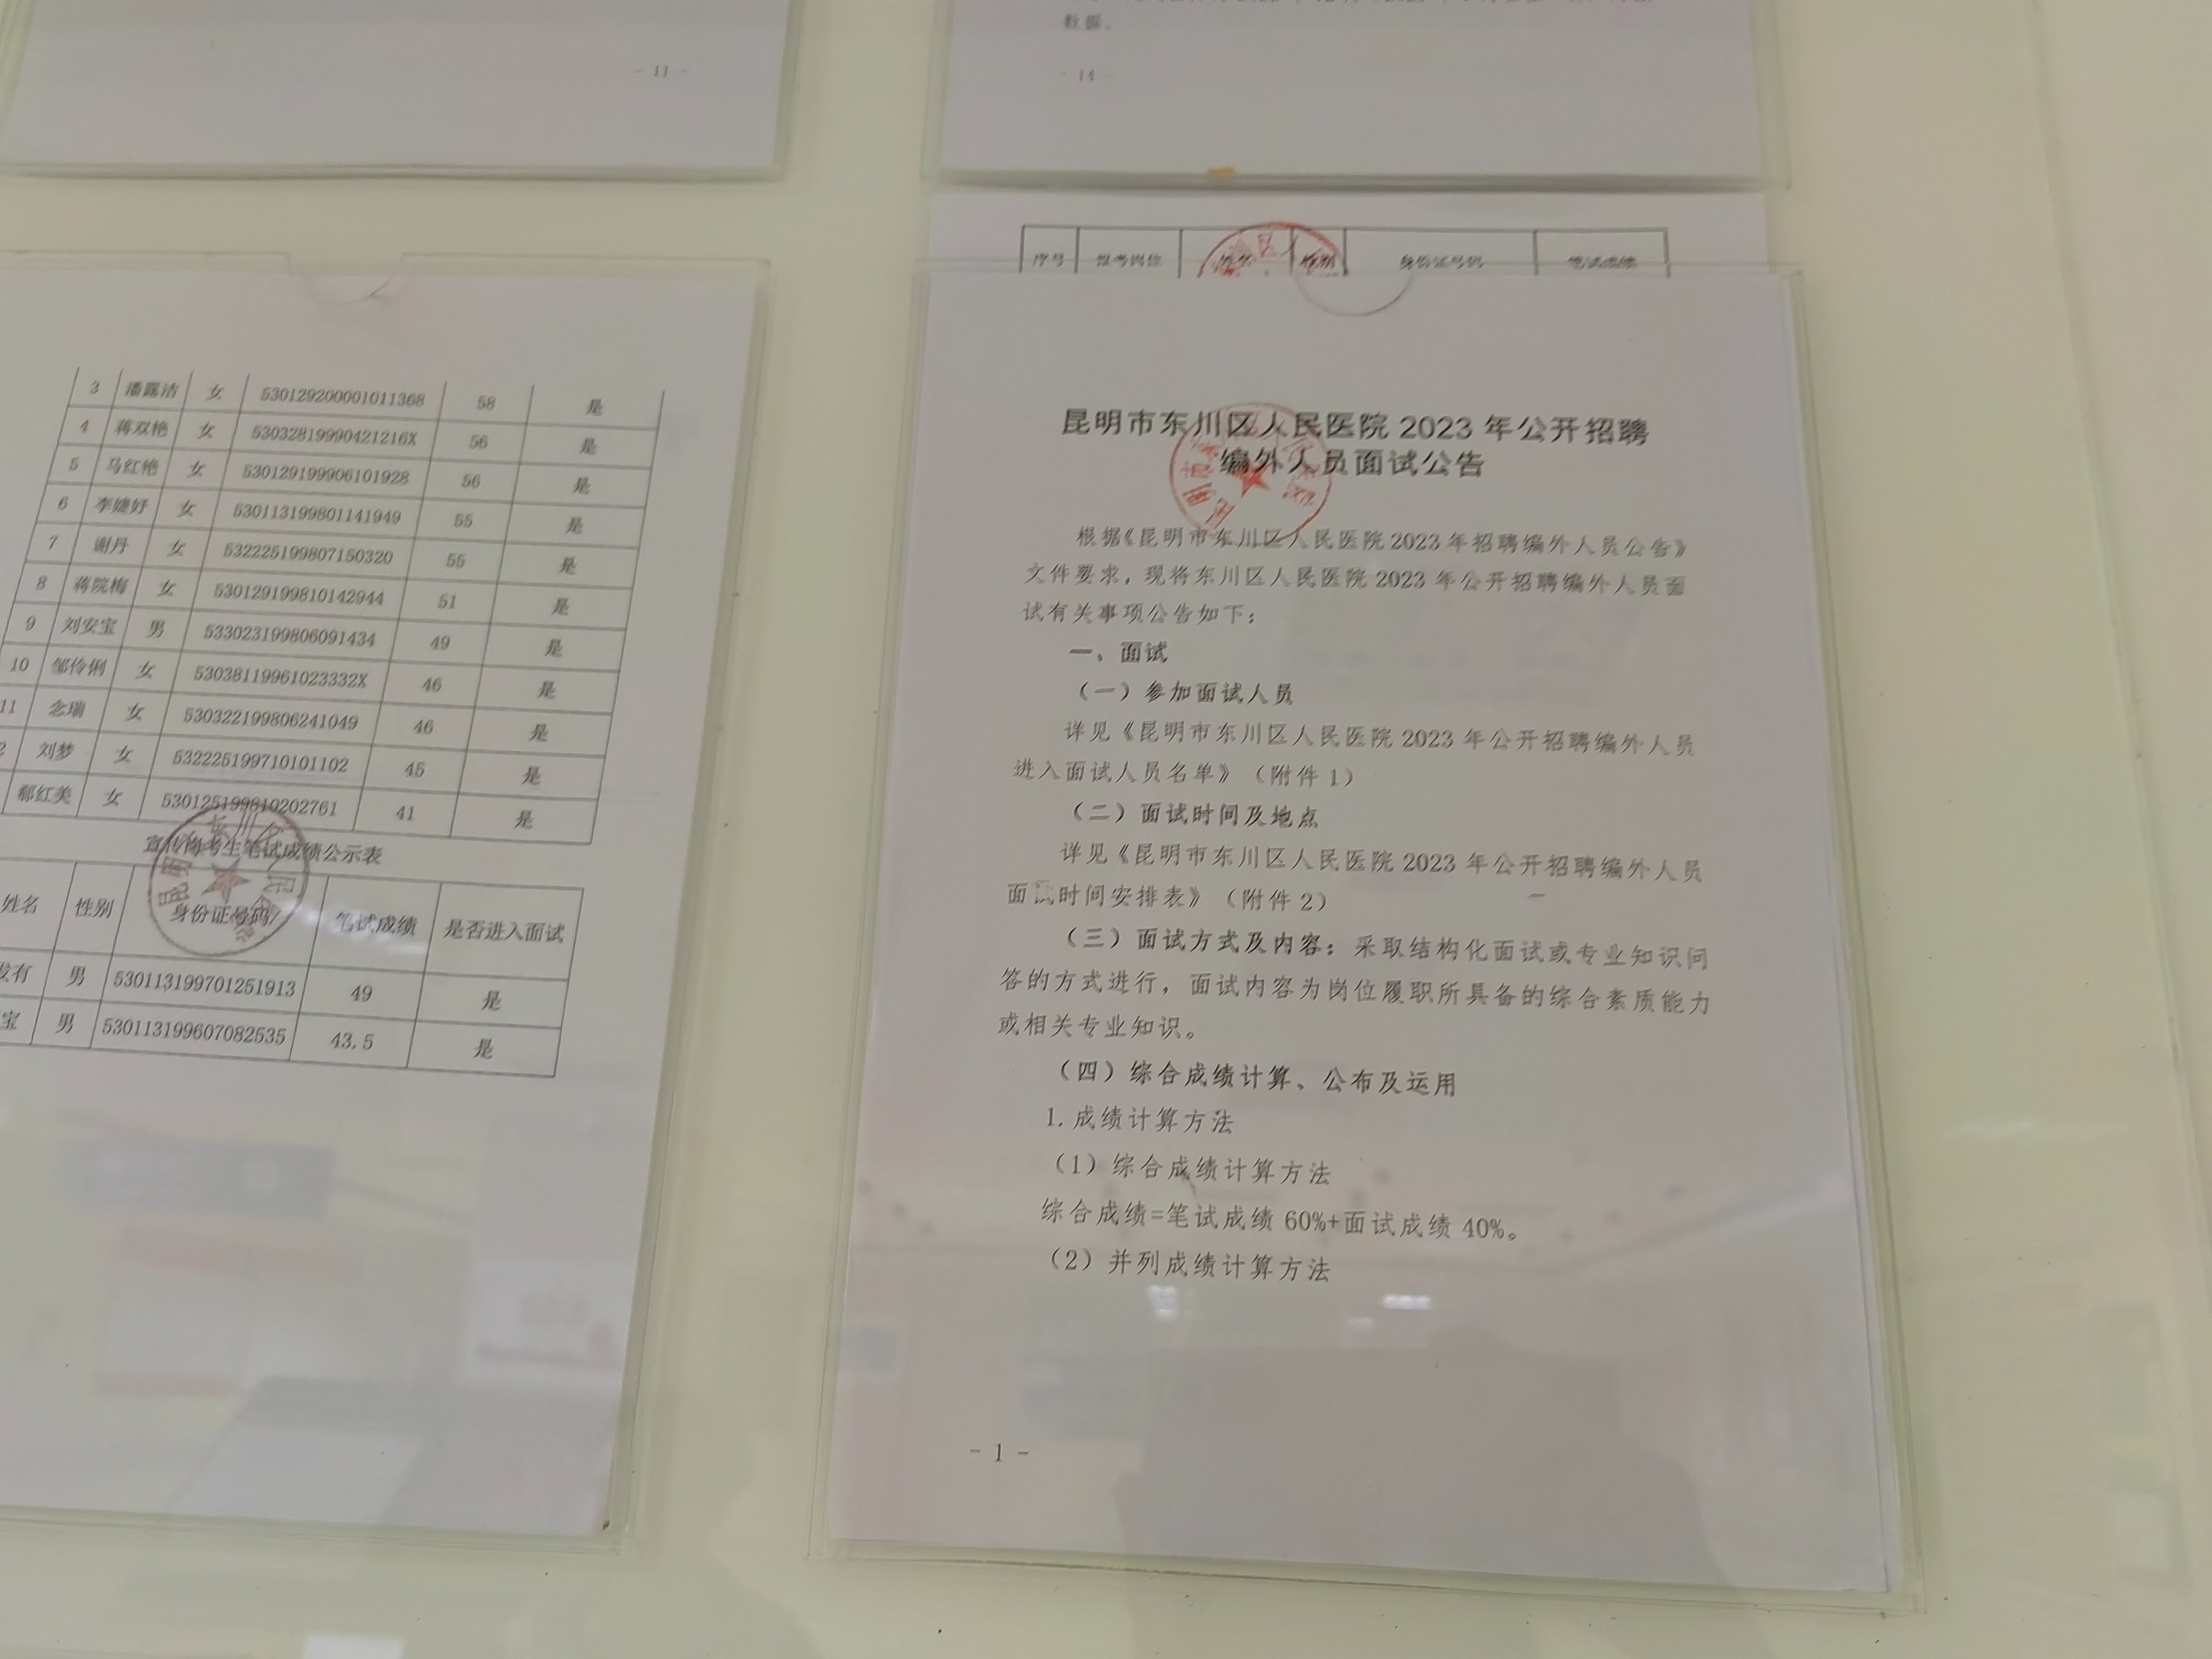 数据。
- 11 -
- 14 -
3 潘露洁 女 530129200001011368 58 是
4 蒋双艳 女 53032819990421216X 56 是
5 马红艳 女 530129199906101928 56 是
6 李婕妤 女 530113199801141949 55 是
7 谢丹 女 532225199807150320 55 是
8 蒋院梅 女 530129199810142944 51 是
9 刘安宝 男 533023199806091434 49 是
10 邹伶俐 女 53038119961023332X 46 是
11 念瑞 女 530322199806241049 46 是
2 刘梦 女 532225199710101102 45 是
郗红美 女 530125199810202761 41 是
考生笔试成绩公示表
姓名 性别 身份证号码 笔试成绩 是否进入面试
发有 男 530113199701251913 49 是
宝 男 530113199607082535 43.5 是
序号 报考岗位 姓名 性别 身份证号码 笔试成绩
昆明市东川区人民医院 2023 年公开招聘
编外人员面试公告
根据《昆明市东川区人民医院 2023 年招聘编外人员公告》
文件要求，现将东川区人民医院 2023 年公开招聘编外人员面
试有关事项公告如下：
一、面试
（一）参加面试人员
详见《昆明市东川区人民医院 2023 年公开招聘编外人员
进入面试人员名单》（附件 1）
（二）面试时间及地点
详见《昆明市东川区人民医院 2023 年公开招聘编外人员
面试时间安排表》（附件 2）
（三）面试方式及内容：采取结构化面试或专业知识问
答的方式进行，面试内容为岗位履职所具备的综合素质能力
或相关专业知识。
（四）综合成绩计算、公布及运用
1.成绩计算方法
（1）综合成绩计算方法
综合成绩=笔试成绩 60%+面试成绩 40%。
（2）并列成绩计算方法
- 1 -